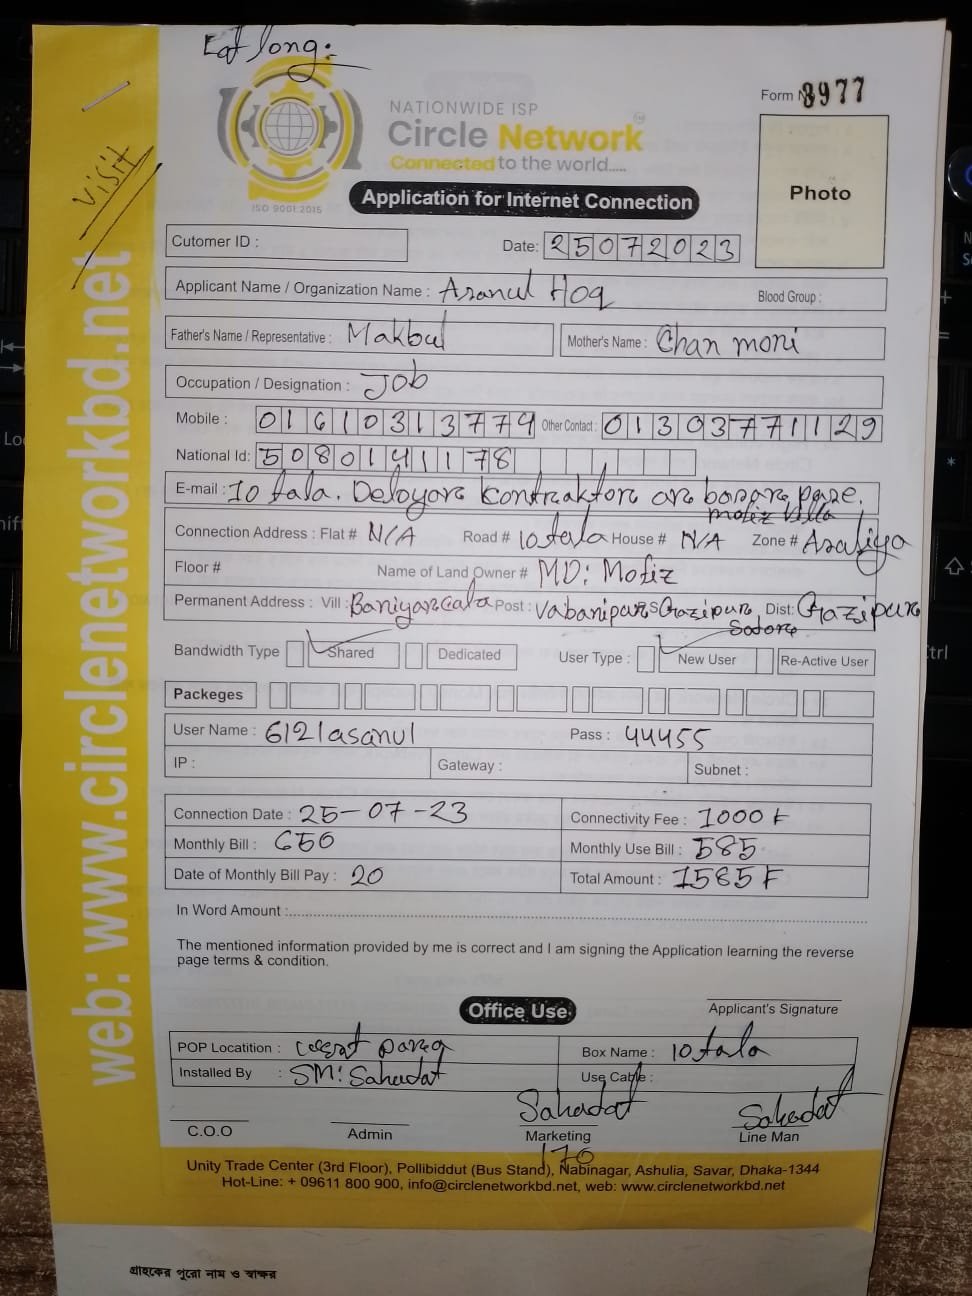 Lat long:
NATIONWIDE ISP
Circle Network
Connected to the world.....
ISO 9001:2015
Form N 8977
Photo
Visit
Application for Internet Connection
Cutomer ID :
Date: 25072023
Applicant Name / Organization Name : Asanul Hoq Blood Group :
Father's Name / Representative : Makbul Mother's Name : Chan moni
Occupation / Designation : Job
Mobile : 01610313774 Other Contact : 01303771129
National Id: 5080141178
E-mail : 10 tala. Deloyare kontraktore are basare pase.
mofiz Villa
Connection Address : Flat # N/A Road # 10tala House # N/A Zone # Asaliya
Floor # Name of Land Owner # MD: Mofiz
Permanent Address : Vill : Baniyarcala Post : Vabanipure S Gazipure Dist: Gazipure
Sadore
Bandwidth Type Shared Dedicated User Type : New User Re-Active User
Packeges
User Name : 6121asanul Pass : 44455
IP : Gateway : Subnet :
Connection Date : 25-07-23 Connectivity Fee : 1000 ৳
Monthly Bill : 650 Monthly Use Bill : 585
Date of Monthly Bill Pay : 20 Total Amount : 1585 ৳
In Word Amount :
The mentioned information provided by me is correct and I am signing the Application learning the reverse
page terms & condition.
Applicant's Signature
Office Use
POP Locatition : Box Name : 10tala
Installed By : SM: Sahadat Use Cable :
Sahadat Sahadat
C.O.O Admin Marketing Line Man
170
Unity Trade Center (3rd Floor), Pollibiddut (Bus Stand), Nabinagar, Ashulia, Savar, Dhaka-1344
Hot-Line: + 09611 800 900, info@circlenetworkbd.net, web: www.circlenetworkbd.net
গ্রাহকের পুরো নাম ও স্বাক্ষর
web: www.circlenetworkbd.net